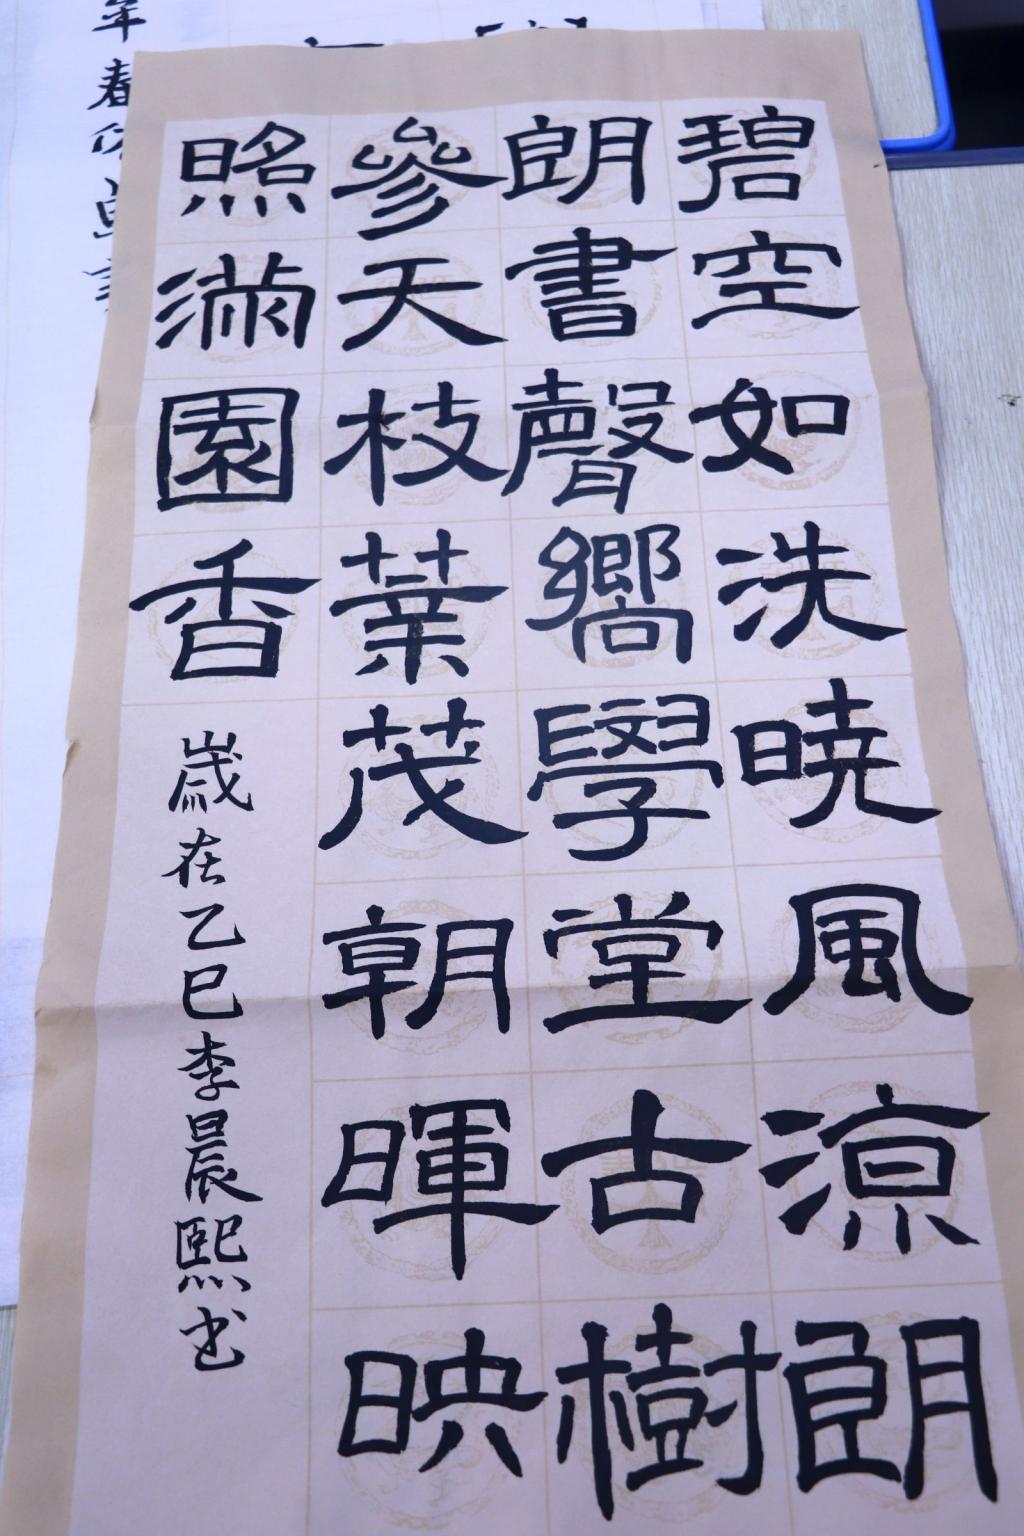 碧空如洗曉風涼朗
朗書聲響學堂古樹
參天枝葉茂朝暉映
照滿園香
歲在乙巳李晨熙书
年春